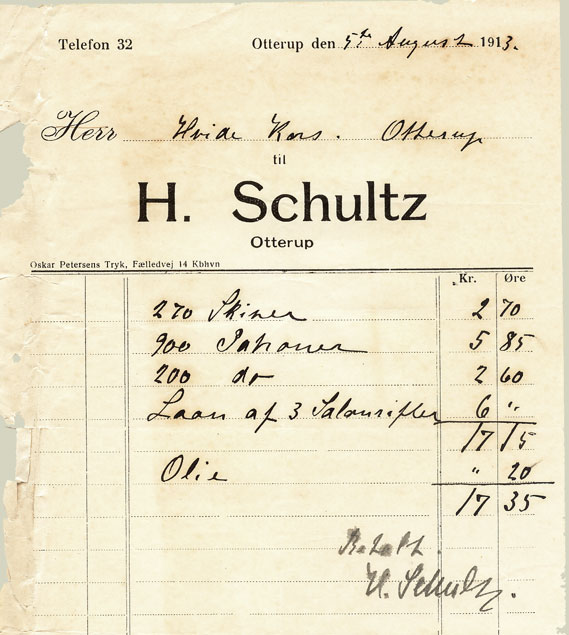 Telefon 32 Otterup den 5te August 1913.
Herr Hvide Kors. Otterup
til
H. Schultz
Otterup
Oskar Petersens Tryk, Fælledvej 14 Kbhvn
Kr. Øre
270 Skiver 2 70
900 Patroner 5 85
200 do 2 60
Laan af 3 Salonrifler 6 "
17 15
Olie " 20
17 35
Betalt.
H. Schultz.